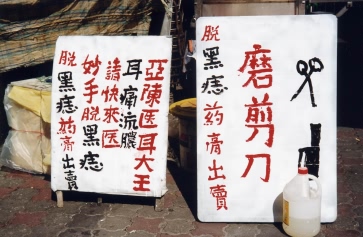 亞陳医耳大王
耳痛流膿
請快來医
妙手脱黑痣
脱黑痣药膏出賣
磨剪刀
脱黑痣药膏出賣